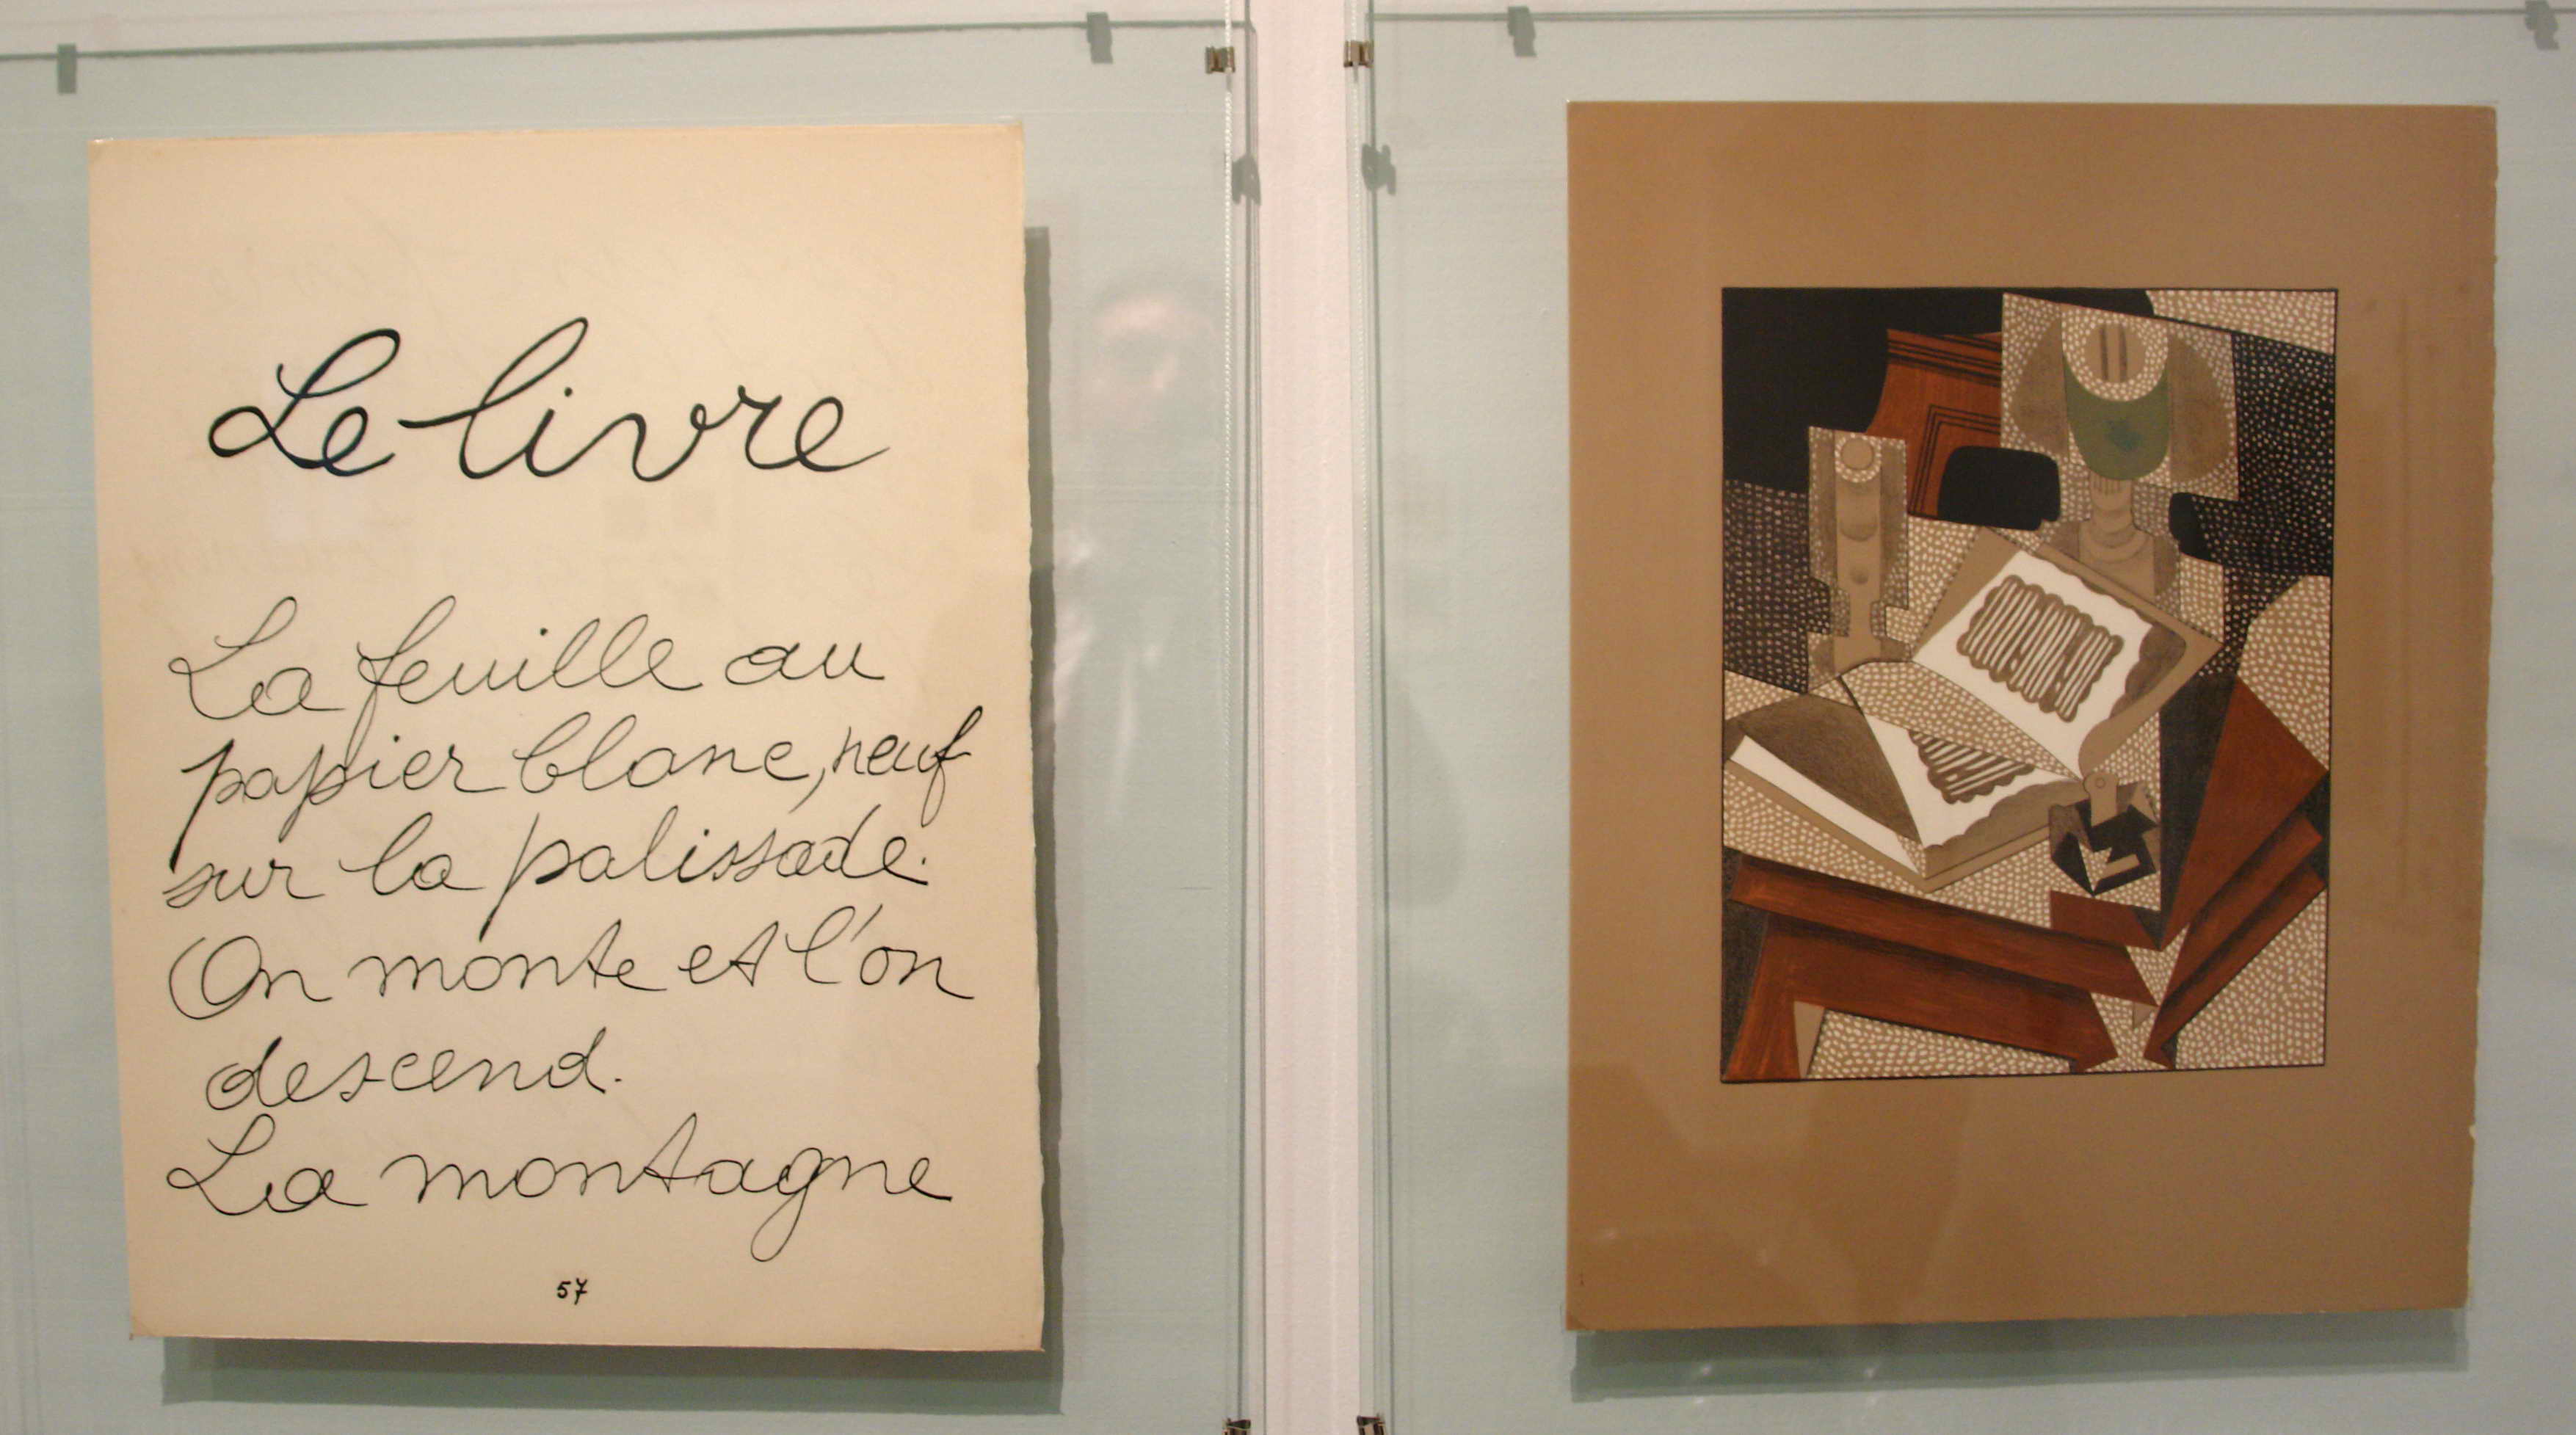 Le livre
La feuille au
papier blanc, neuf
sur la palissade.
On monte et l'on
descend.
La montagne
57